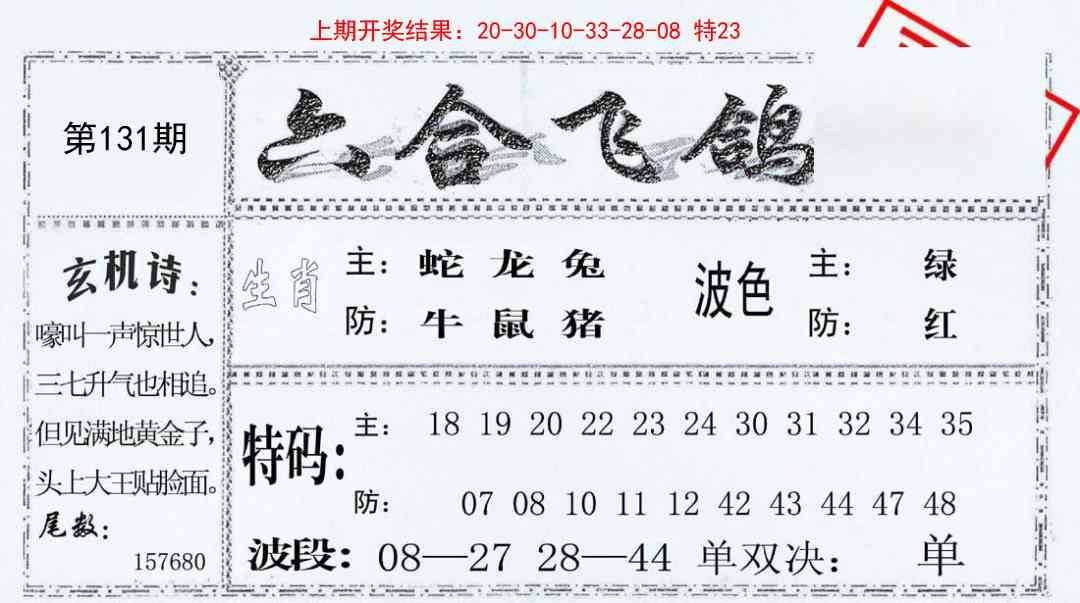 上期开奖结果：20-30-10-33-28-08 特23
第131期
六合飞鸽
玄机诗：
嚎叫一声惊世人，
三七升气也相追。
但见满地黄金子，
头上大王贴脸面。
尾数：
157680
生肖
主：蛇 龙 兔
防：牛 鼠 猪
波色
主：绿
防：红
特码：
主：18 19 20 22 23 24 30 31 32 34 35
防：07 08 10 11 12 42 43 44 47 48
波段：08—27 28—44 单双决：单